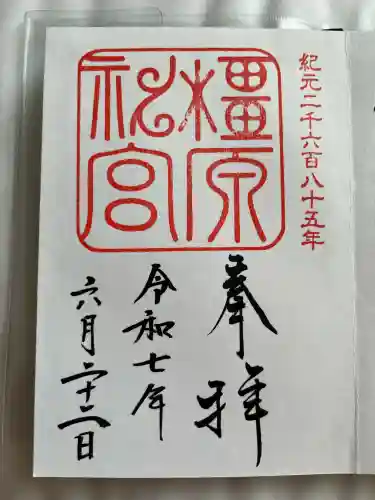 紀元二千六百八十五年
橿原神宮
奉拝
令和七年
六月二十二日